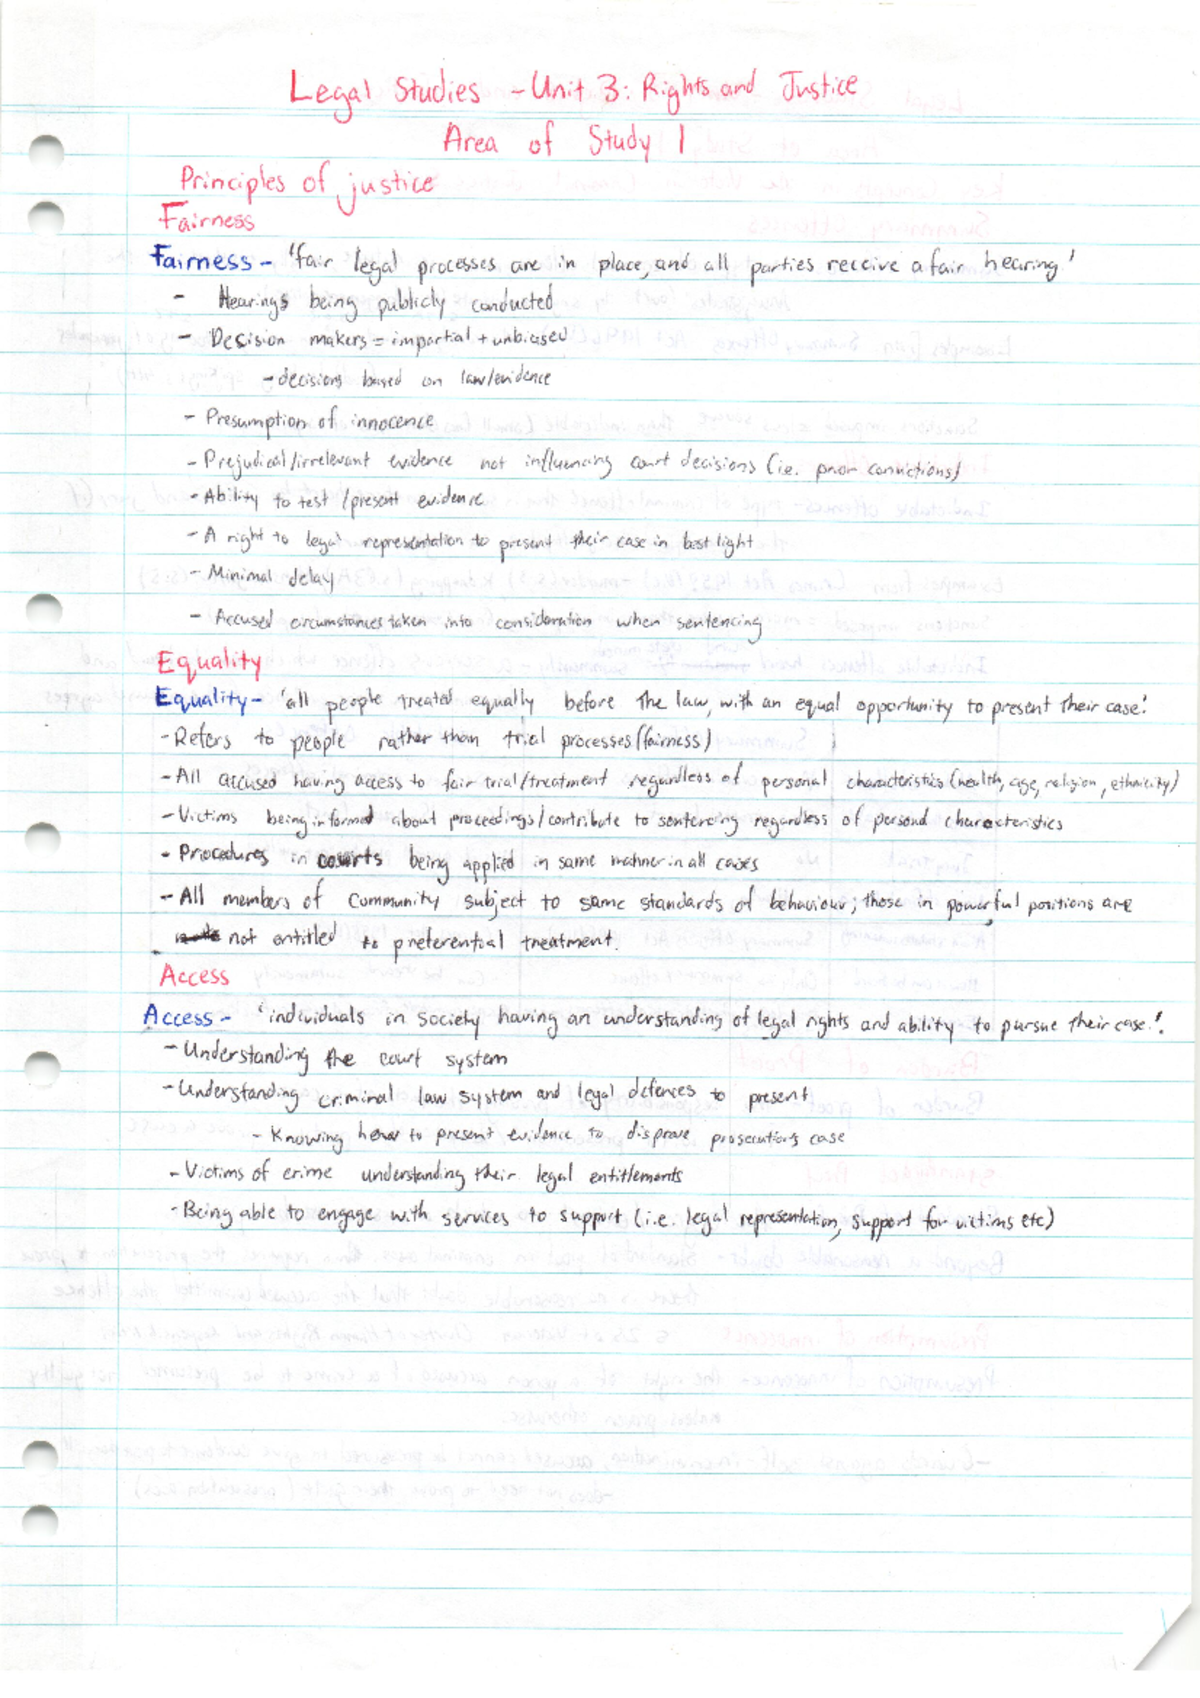 Legal Studies - Unit 3: Rights and Justice
Area of Study 1
Principles of justice
Fairness
Fairness - 'fair legal processes are in place, and all parties receive a fair hearing'
- Hearings being publicly conducted
- Decision makers = impartial + unbiased
- decisions based on law/evidence
- Presumption of innocence
- Prejudical/irrelevant evidence not influencing court decisions (i.e. prior convictions)
- Ability to test/present evidence
- A right to legal representation to present their case in best light
- Minimal delay
- Accused circumstances taken into consideration when sentencing
Equality
Equality - 'all people treated equally before the law, with an equal opportunity to present their case'.
- Refers to people rather than trial processes (fairness)
- All accused having access to fair trial/treatment regardless of personal characteristics (health, age, religion, ethnicity)
- Victims being informed about proceedings/contribute to sentencing regardless of personal characteristics
- Procedures in courts being applied in same manner in all cases
- All members of community subject to same standards of behaviour; those in powerful positions are
not entitled to preferential treatment.
Access
Access - 'individuals in society having an understanding of legal rights and ability to pursue their case.'.
- Understanding the court system
- Understanding criminal law system and legal defences to present
- Knowing how to present evidence to disprove prosecution's case
- Victims of crime understanding their legal entitlements
- Being able to engage with services to support (i.e. legal representation, support for victims etc)